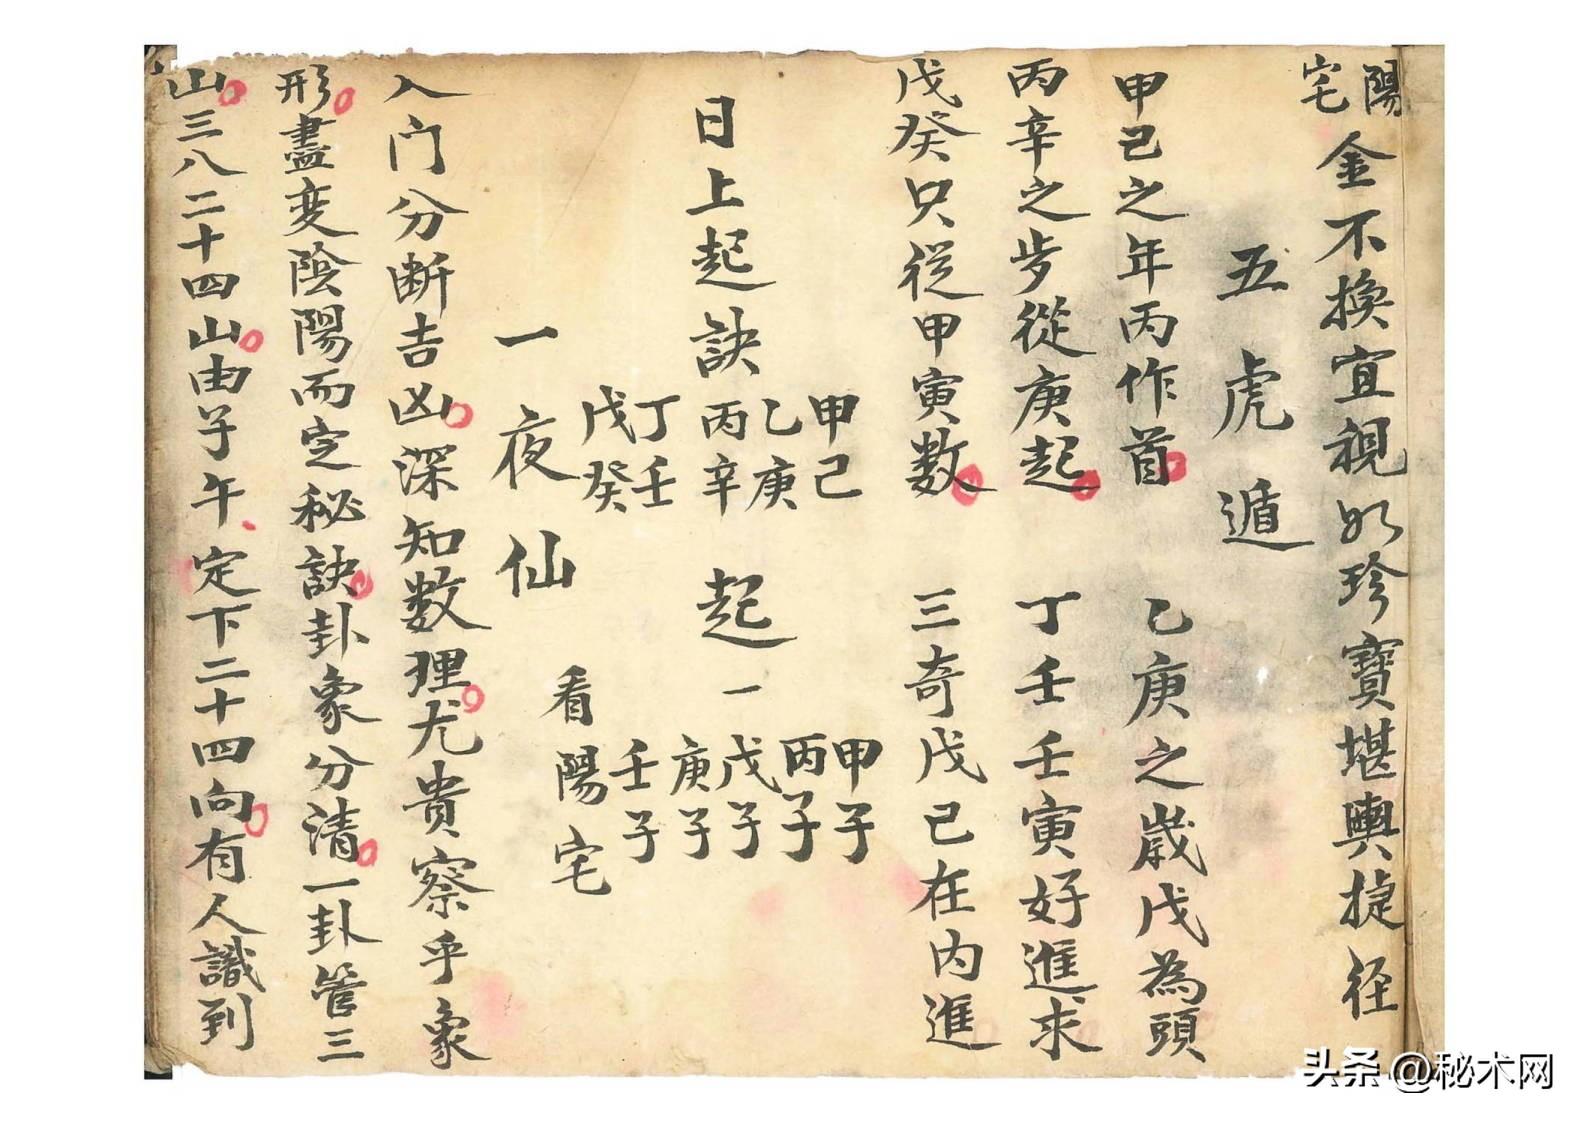 陽宅金不換宜視如珍寶堪輿捷径
五虎遁
甲己之年丙作首 乙庚之歲戊為頭
丙辛之步從庚起 丁壬壬寅好進求
戊癸只從甲寅數 三奇戊己在内進
日上起訣
甲己
乙庚
丙辛
丁壬
戊癸
起一
甲子
丙子
戊子
庚子
壬子
一夜仙 看陽宅
入门分断吉凶深知数理尤貴察乎象
形盡变陰陽而定秘訣卦象分清一卦管三
山三八二十四山由子午定下二十四向有人識到
头条 @秘术网